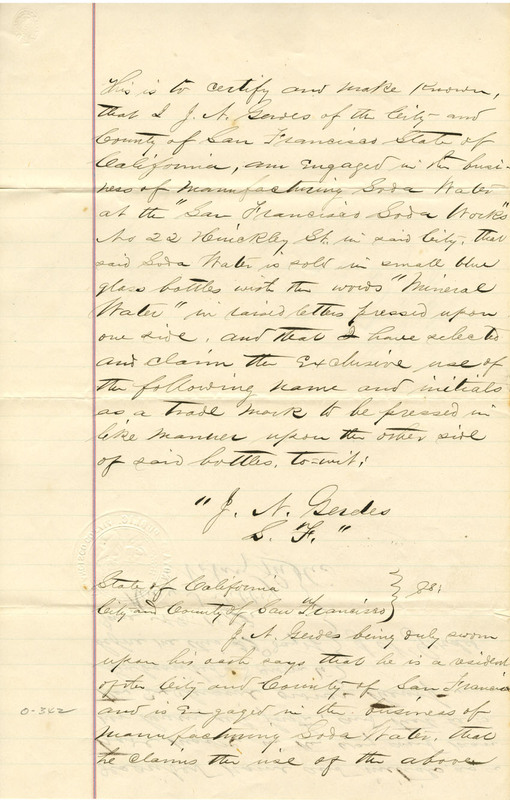 This is to certify and make known,
that I J. N. Gerdes of the City and
County of San Francisco State of
California, am engaged in the busi-
ness of manufacturing Soda Water
at the "San Francisco Soda Works"
No 22 Hinckley St. in said City, that
said Soda Water is sold in small blue
glass bottles with the words "Mineral
Water" in raised letters pressed upon
one side, and that I have selected
and claim the exclusive use of
the following name and initials
as a trade mark to be pressed in
like manner upon the other side
of said bottles, to-wit:
"J. N. Gerdes
S. F."
State of California
City and County of San Francisco } ss:
J. N. Gerdes being duly sworn
upon his oath says that he is a resident
of the City and County of San Francisco
and is engaged in the business of
manufacturing Soda Water, that
he claims the use of the above
0-342